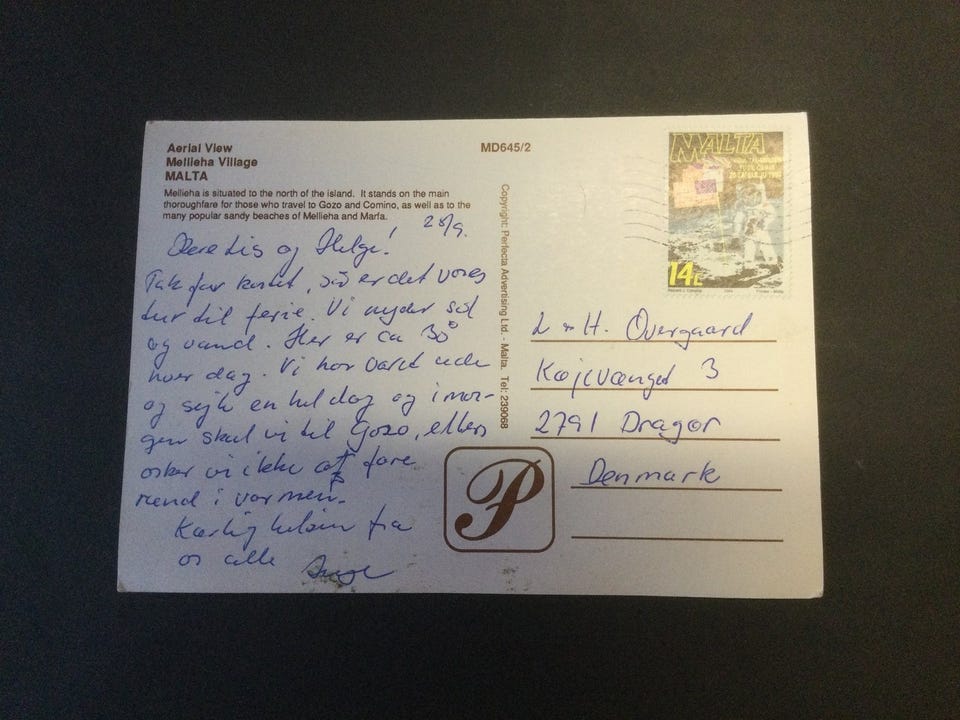 Aerial View
Mellieha Village
MALTA
MD645/2
Mellieha is situated to the north of the island. It stands on the main
thoroughfare for those who travel to Gozo and Comino, as well as to the
many popular sandy beaches of Mellieha and Marfa.
28/9.
Kære Lis og Helge!
Tak for kortet, så er det vores
tur til ferie. Vi nyder sol
og vand. Her er ca 30°
hver dag. Vi har været ude
og sejle en hel dag og i mor-
gen skal vi til Gozo, ellers
orker vi ikke at fare
rundt i varmen.
Kærlig hilsen fra
os alle
Copyright: Perfecta Advertising Ltd. - Malta. Tel: 239068
MALTA
14c
L + H. Overgaard
Køjevænget 3
2791 Dragør
Denmark
P